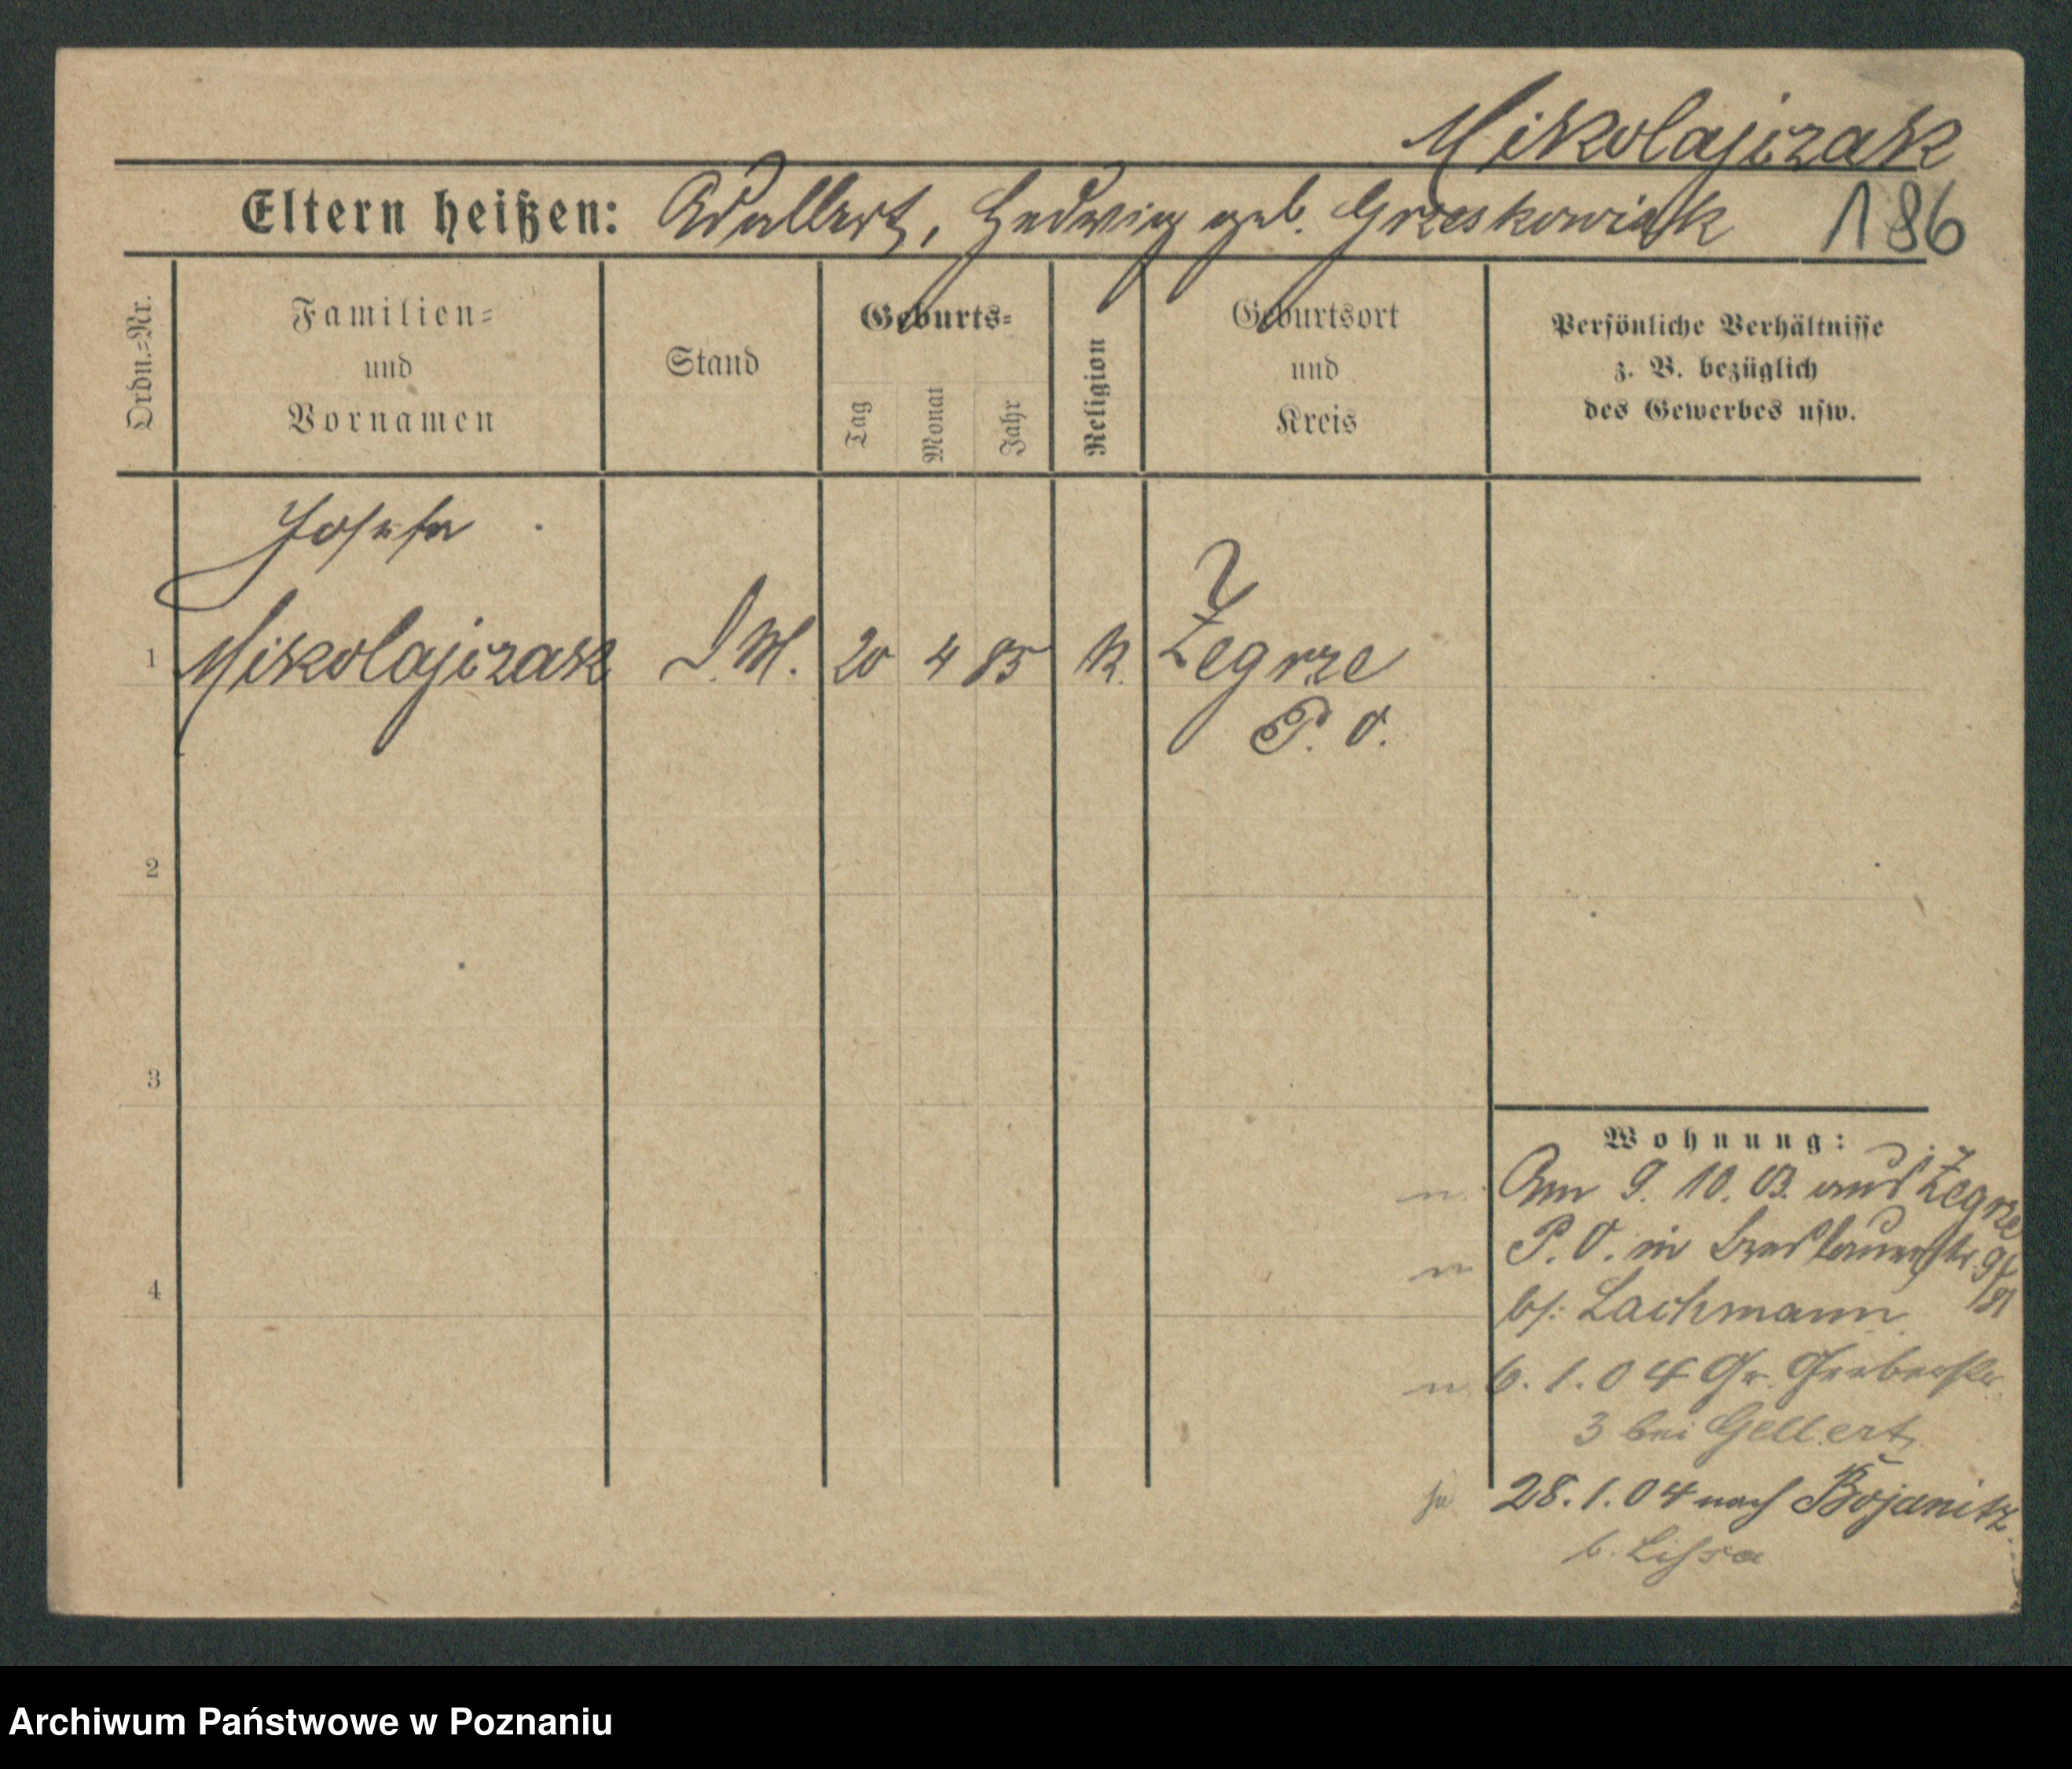 Mikolajczak
Eltern heißen: Adalbert, Hedwig geb. Grzeskowiak 186
Ordn.=Nr.
Familien=
und
Vornamen
Stand
Geburts=
Tag
Monat
Jahr
Religion
Geburtsort
und
Kreis
Persönliche Verhältnisse
z. B. bezüglich
des Gewerbes usw.
Josefa
1 Mikolajczak D.M. 20 4 85 k. Zegrze
P. O.
2
3
4
Wohnung:
Am 9. 10. 03. aus Zegrze
P. O. in Breslauerstr. 9
bei: Lachmann
6. 1. 04 Gr. Gerberstr.
3 bei Gellert
28. 1. 04 nach Bojanitz
b. Lissa
Archiwum Państwowe w Poznaniu